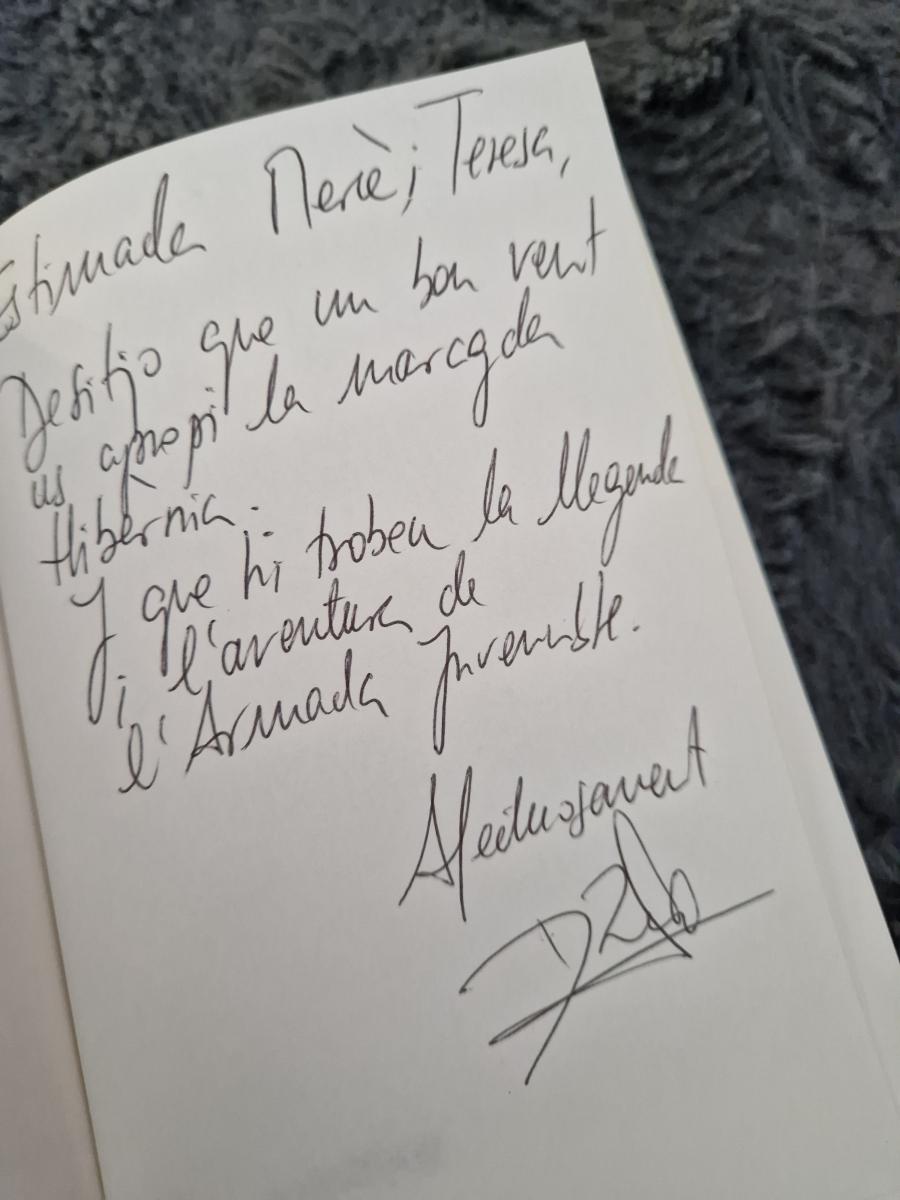 Estimada Mercè i Teresa,
Desitjo que un bon vent
us apropi la maragda
Hibèrnia.
I que hi trobeu la llegenda
i l'aventura de
l'Armada Invencible.
Afectuosament